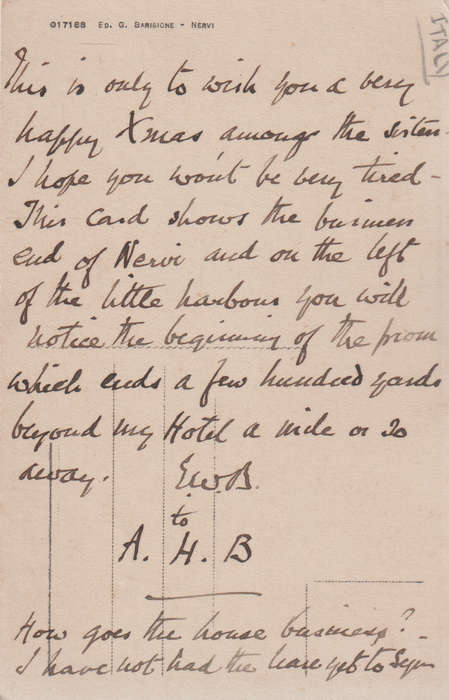 017188 ED. G. BARISIONE - NERVI
ITALY
This is only to wish you a very
happy Xmas amongst the sisters.
I hope you won't be very tired -
This card shows the business
end of Nervi and on the left
of the little harbour you will
notice the beginning of the prom
which ends a few hundred yards
beyond my Hotel a mile or so
away.
E.W.B.
to
A. H. B
How goes the house business? -
I have not had the lease yet to